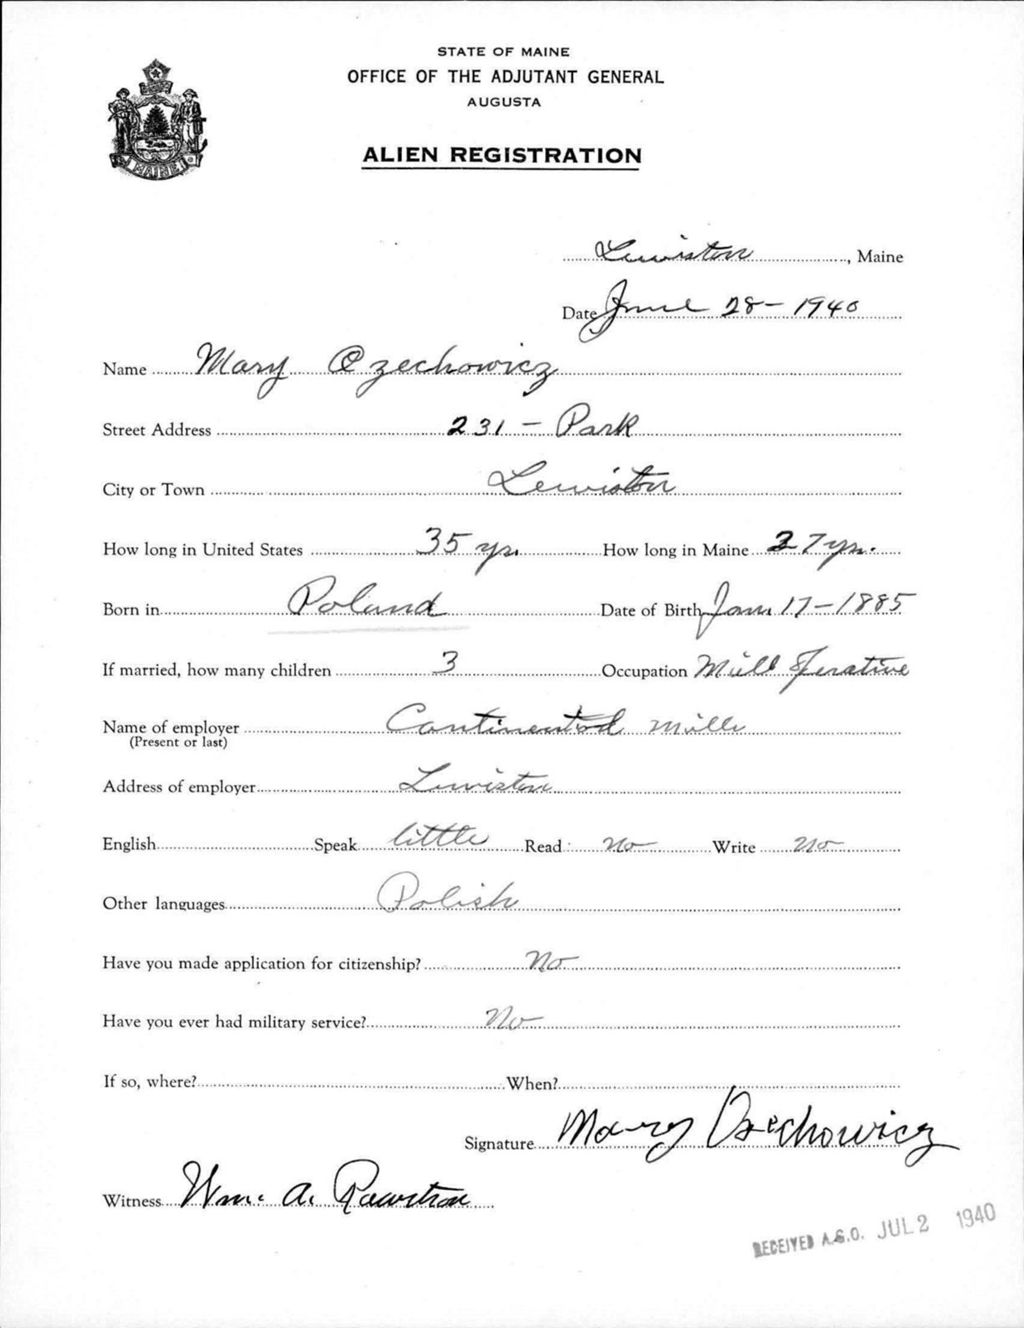 STATE OF MAINE
OFFICE OF THE ADJUTANT GENERAL
AUGUSTA
ALIEN REGISTRATION
MAINE
Lewiston, Maine
Date June 28 - 1940
Name Mary Ozechowicz
Street Address 231 - Park
City or Town Lewiston
How long in United States 35 yrs. How long in Maine 27 yrs.
Born in Poland Date of Birth Jan 17 - 1885
If married, how many children 3 Occupation Mill Operative
Name of employer Continental Mills
(Present or last)
Address of employer Lewiston
English Speak little Read no Write no
Other languages Polish
Have you made application for citizenship? No
Have you ever had military service? No
If so, where? When?
Signature Mary Ozechowicz
Witness Wm. A.
RECEIVED A.G.O. JUL 2 1940